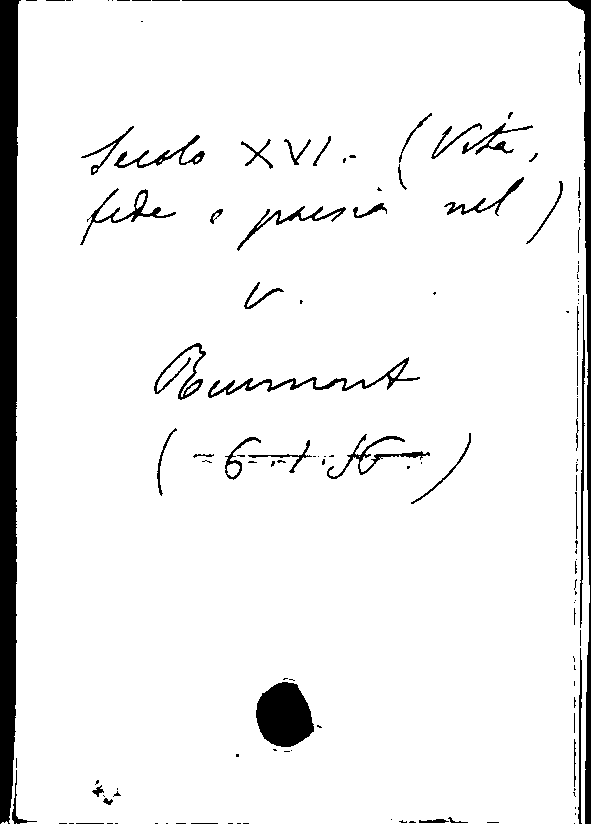 Secolo XVI. - (Vita,
fede e poesia nel)
v.
Reumont
(6.1.56.)